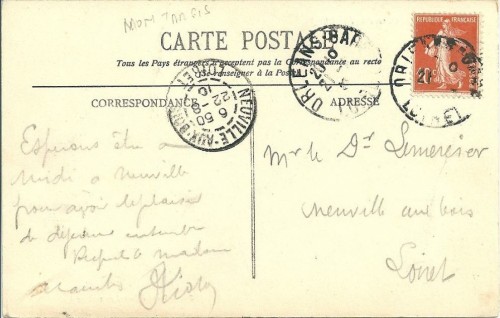 MONTARGIS
CARTE POSTALE
Tous les Pays étrangers n'acceptent pas la Correspondance au recto
(Se renseigner à la Poste)
REPUBLIQUE FRANÇAISE
ORLEANS-GARE
NEUVILLE-AUX-BOIS
6 50
22 -9
LOIRET
ORLEANS
CORRESPONDANCE
ADRESSE
Espérons être à
midi à Neuville
pour avoir le plaisir
de déjeuner
madame
Mr le Dr Lemercier
Neuville aux bois
Loiret